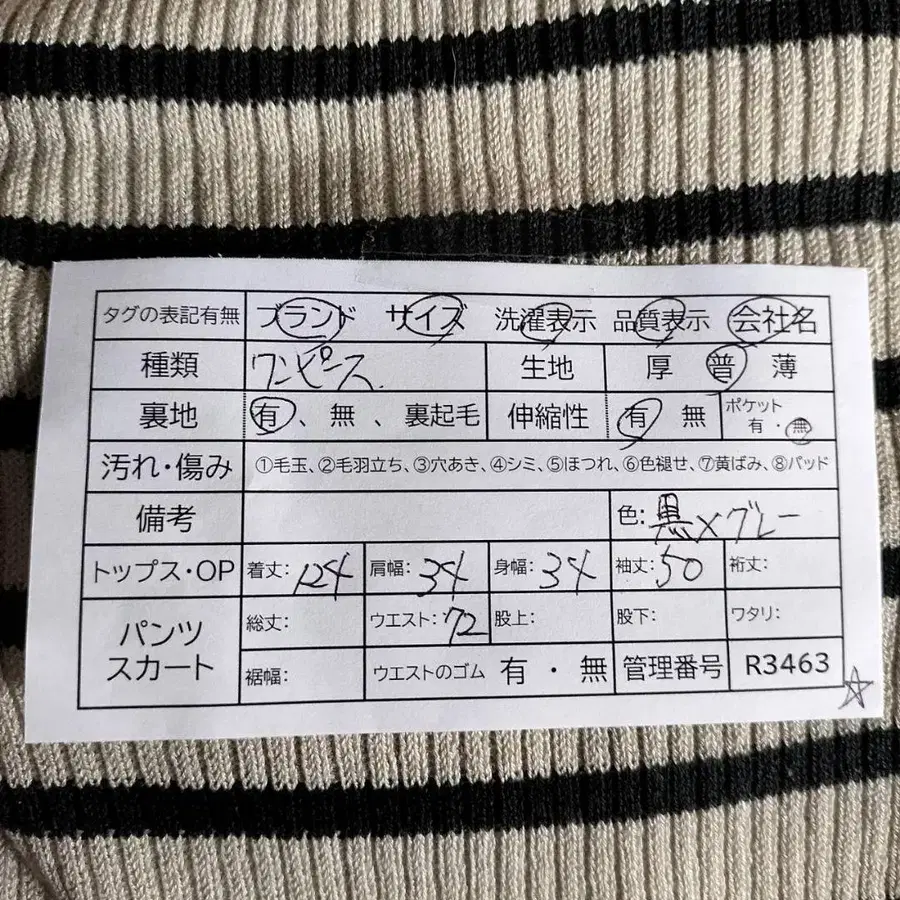 タグの表記有無 ブランド サイズ 洗濯表示 品質表示 会社名
種類 ワンピース 生地 厚 普 薄
裏地 有、無、裏起毛 伸縮性 有 無 ポケット 有・無
汚れ・傷み ①毛玉、②毛羽立ち、③穴あき、④シミ、⑤ほつれ、⑥色褪せ、⑦黄ばみ、⑧パッド
備考 色:黒×グレー
トップス・OP 着丈:124 肩幅:34 身幅:34 袖丈:50 裄丈:
パンツ スカート 総丈: ウエスト:72 股上: 股下: ワタリ:
裾幅: ウエストのゴム 有・無 管理番号 R3463